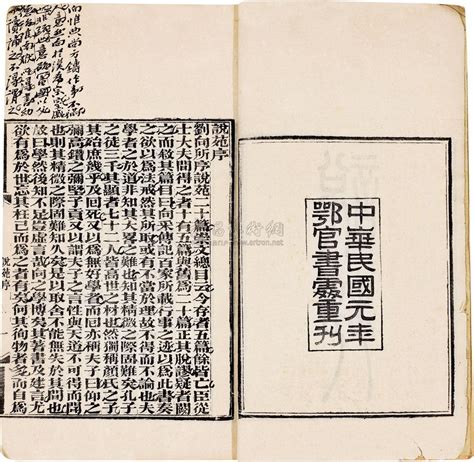 中華民國元年
鄂官書處重刊
說苑序
劉向所序說苑二十篇崇文總目云今存者五篇餘皆亡臣從
士大夫間得之者十有五篇與舊爲二十篇正其脫謬疑者闕
之而敘其篇目曰向采傳記百家所載行事之迹以爲此書奏
之欲以爲法戒然其所取或有不當於理故不得而不論也夫
學者之於道非知其大略之難也知其精微之際固難矣孔子
之徒三千其顯者七十二人皆高世之材也然獨稱顏氏之子
其殆庶幾乎及回死又以爲無好學者而回亦稱夫子曰仰之
彌高鑽之彌堅子貢又以爲夫子之言性與天道不可得而聞
也則其精微之際固難知久矣是以取舍不能無失於其間也
故曰學然後知不足豈虛言哉向之學博矣其著書及建言尤
欲有爲於世忘其枉己而爲之者有矣何其徇物者多而自爲
說苑序